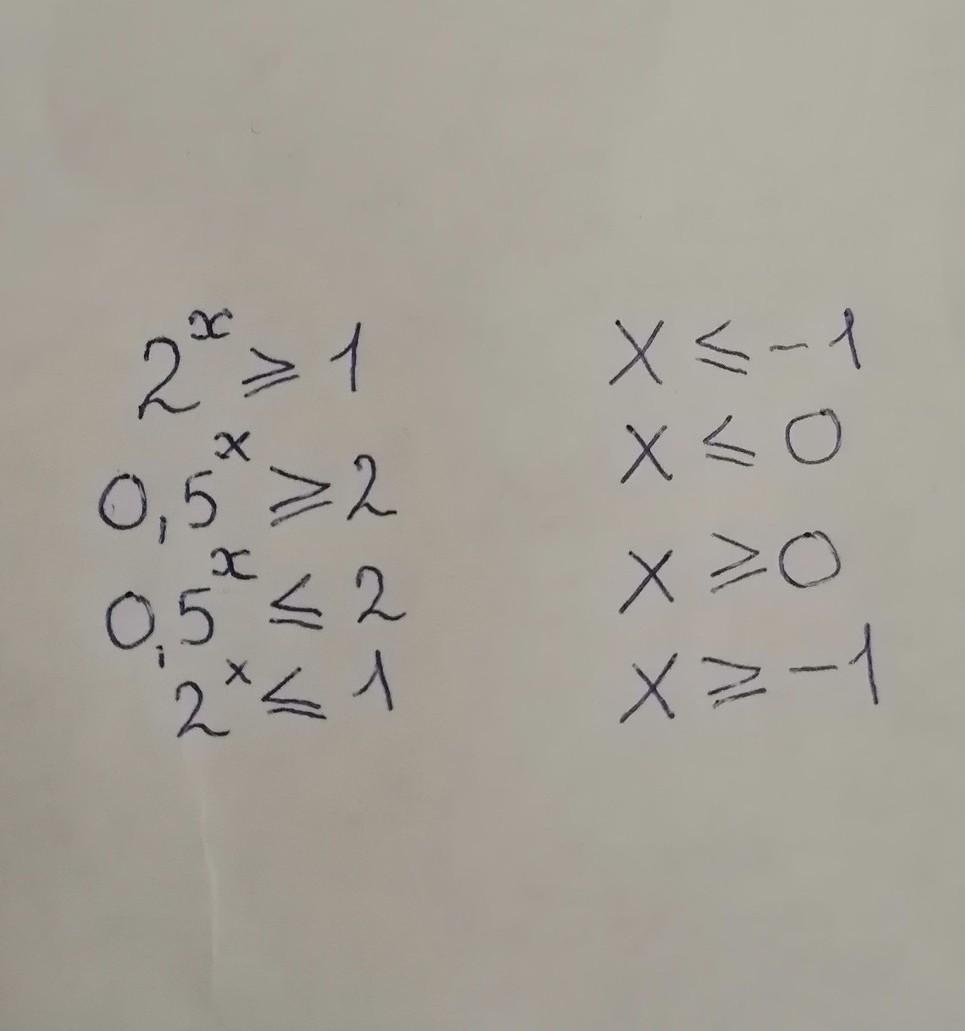 2^x ⩾ 1
0,5^x ⩾ 2
0,5^x ⩽ 2
2^x ⩽ 1
x ⩽ -1
x ⩽ 0
x ⩾ 0
x ⩾ -1